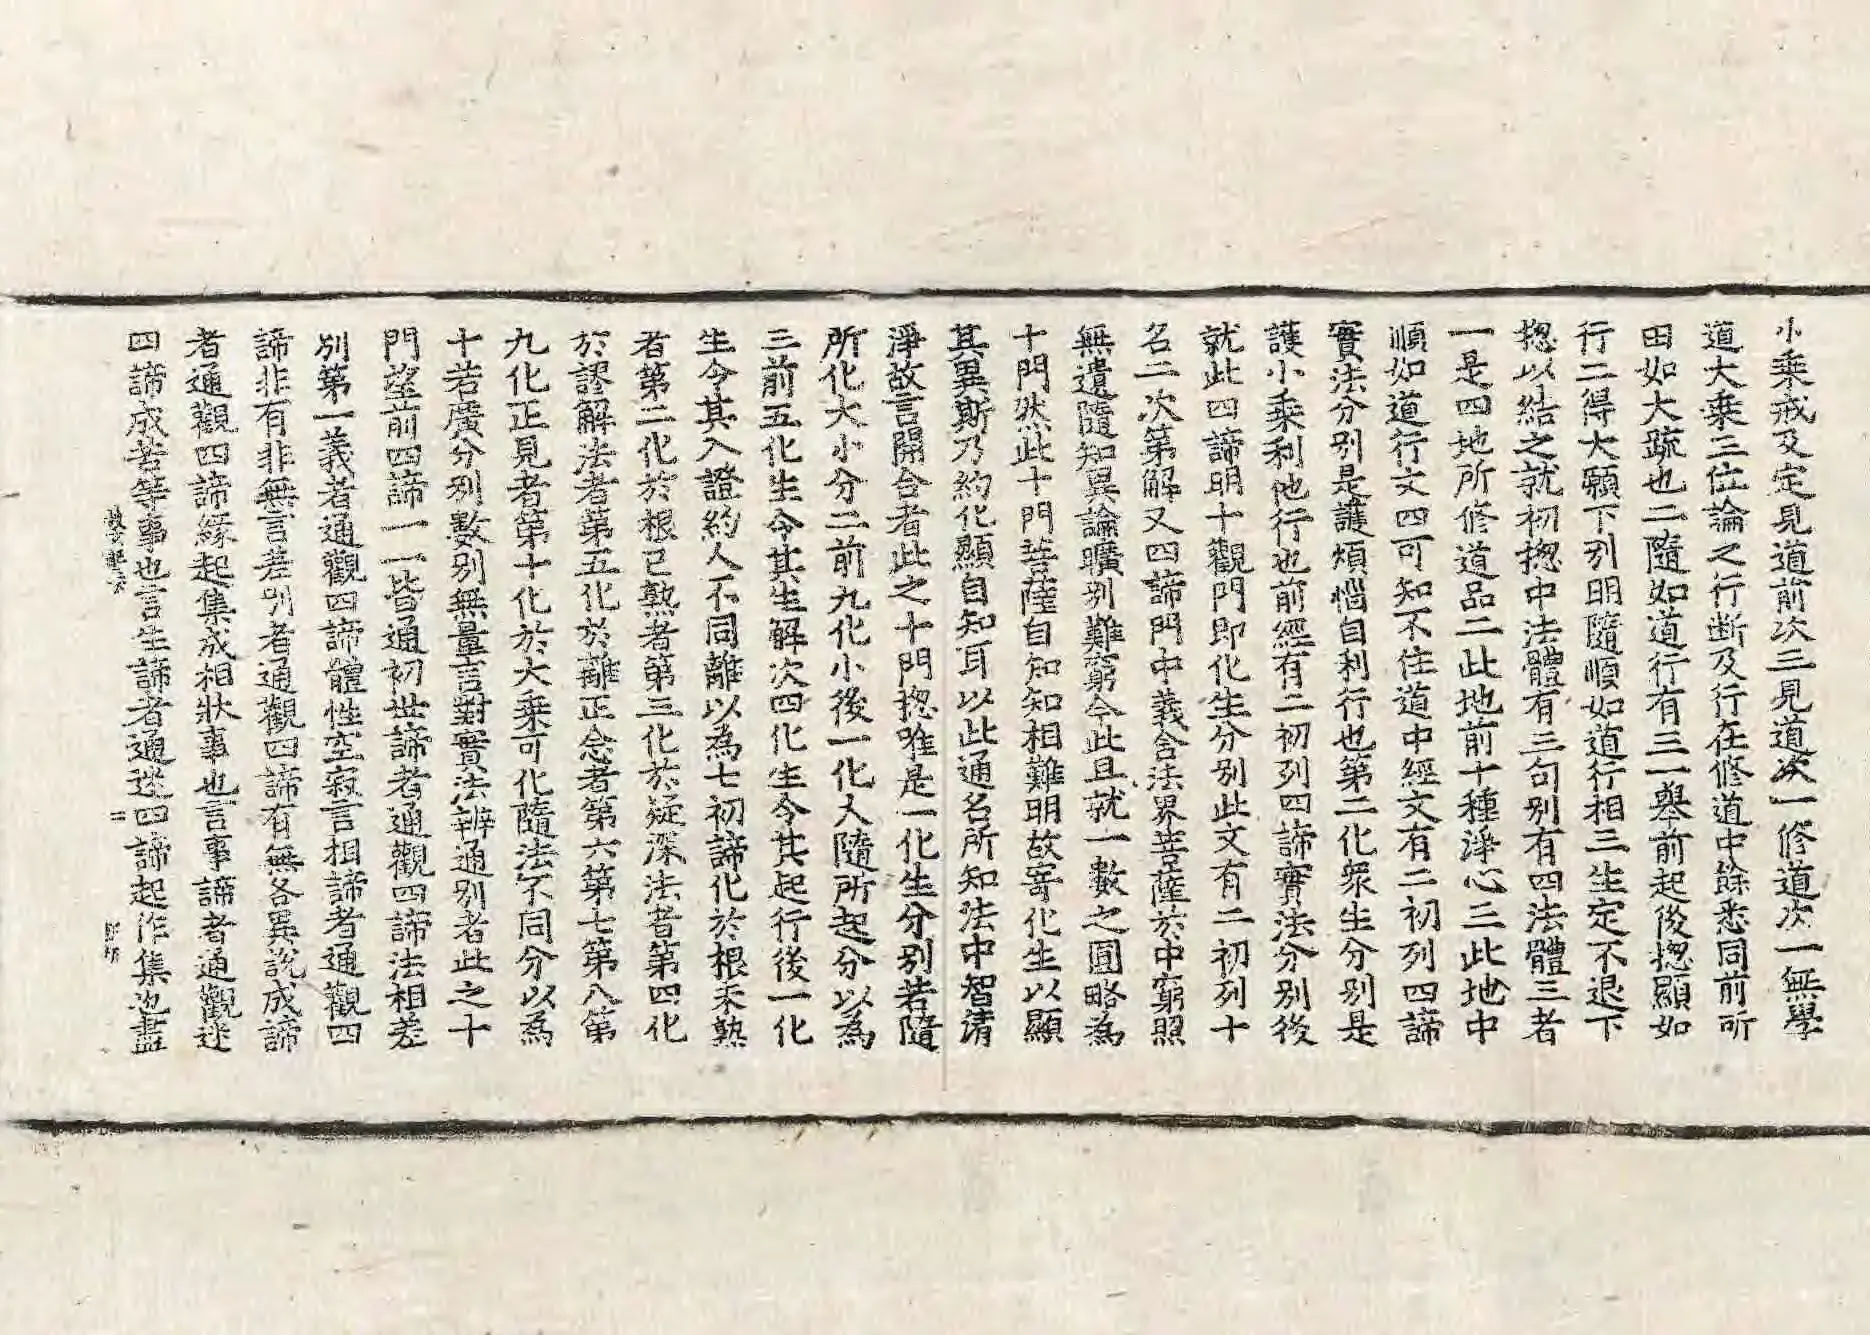 小乘戒及定見道前次三見道次一修道次一無學
道大乘三位論之行断及行在修道中餘悉同前所
田如大䟽也二隨如道行有三一舉前起後揔顯如
行二得大願下列明隨順如道行相三生定不退下
揔以結之就初揔中法體有三句別有四法體三者
一是四地所修道品二此地前十種淨心三此地中
順如道行文四可知不住道中經文有二初列四諦
實法分別是護煩惱自利行也第二化衆生分別是
護小乘利他行也前經有二初列四諦實法分別後
就此四諦明十觀門即化生分別此文有二初列十
名二次第解又四諦門中義含法界菩薩於中窮照
無遺隨知異論曠別難窮今此且就一數之圓略為
十門然此十門菩薩自知知相難明故寄化生以顯
其異斯乃約化顯自知耳以此通名所知法中智清
淨故言開合者此之十門揔唯是一化生分別若隨
所化大小分二前九化小後一化入隨所起分以為
三前五化生令其生解次四化生令其起行後一化
生令其入證約人不同離以為七初諦化於根未熟
者第二化於根已熟者第三化於疑深法者第四化
於謬解法者第五化於離正念者第六第七第八第
九化正見者第十化於大乘可化隨法不同分以為
十若廣分別數別無量言對實法辨通別者此之十
門望前四諦一一皆通初世諦者通觀四諦法相差
別第一義者通觀四諦體性空寂言相諦者通觀四
諦非有非無言差別者通觀四諦有無各異說成諦
者通觀四諦緣起集成相狀事也言事諦者通觀迷
四諦成苦等事也言生諦者通迷四諦起作集也盡